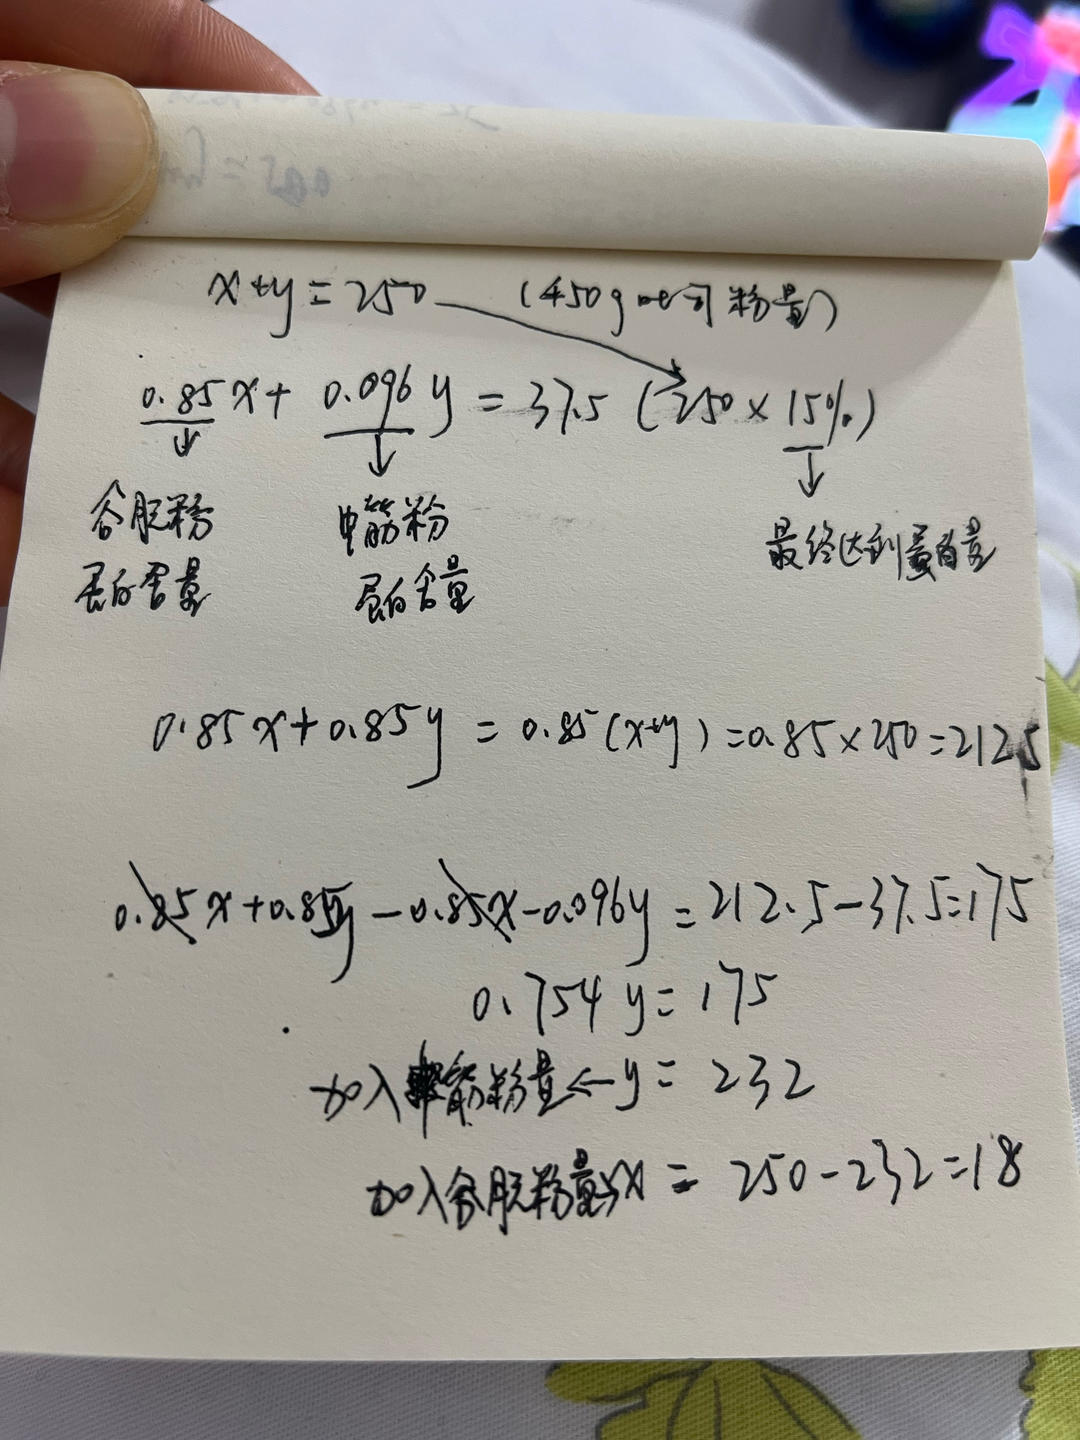 x+y=250 (450g吐司粉量)
0.85x+0.096y=37.5(250×15%)
谷朊粉 中筋粉 最终达到蛋白量
蛋白含量 蛋白含量
0.85x+0.85y=0.85(x+y)=0.85×250=212.5
0.85x+0.85y-0.85x-0.096y=212.5-37.5=175
0.754y=175
加入中筋粉量←y=232
加入谷朊粉量 x=250-232=18